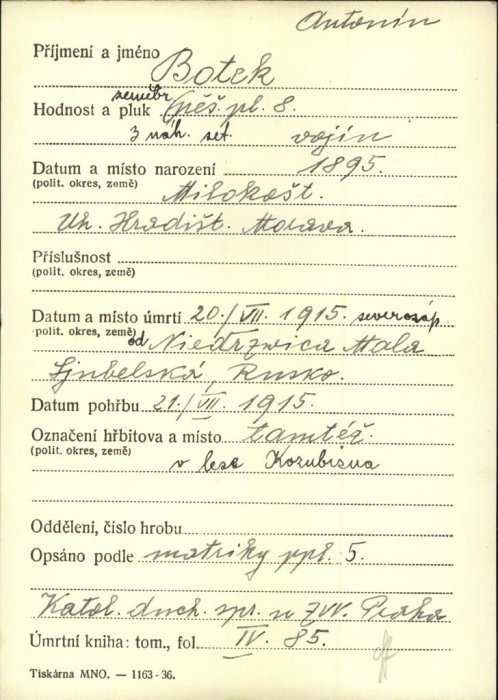 Antonín
Příjmení a jméno Botek
zeměbr.
Hodnost a pluk pěš. pl. 8.
3 náh. set. vojín
Datum a místo narození 1895.
(polit. okres, země) Milokošt.
Uh. Hradišt. Morava.
Příslušnost
(polit. okres, země)
Datum a místo úmrtí 20./VII. 1915. severozáp.
(polit. okres, země) od Niedrzwica Mala
Ljubelská, Rusko.
Datum pohřbu 21./VII. 1915.
Označení hřbitova a místo tamtéž.
(polit. okres, země)
v lese Kozubizna
Oddělení, číslo hrobu
Opsáno podle matriky ppl. 5.
Katol. duch. spr. u ZVV. Praha
Úmrtní kniha: tom., fol. IV. 85.
Tiskárna MNO. — 1163-36.